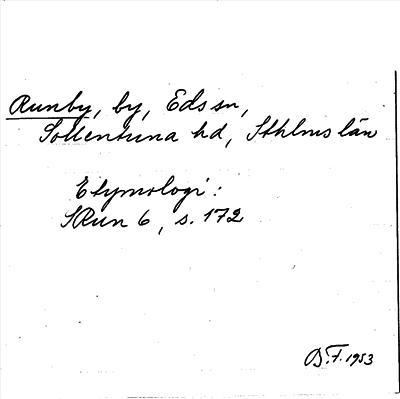 Runby, by, Eds sn,
Sollentuna hd, Sthlms län
Etymologi:
SRun 6, s. 172
D.F. 1953